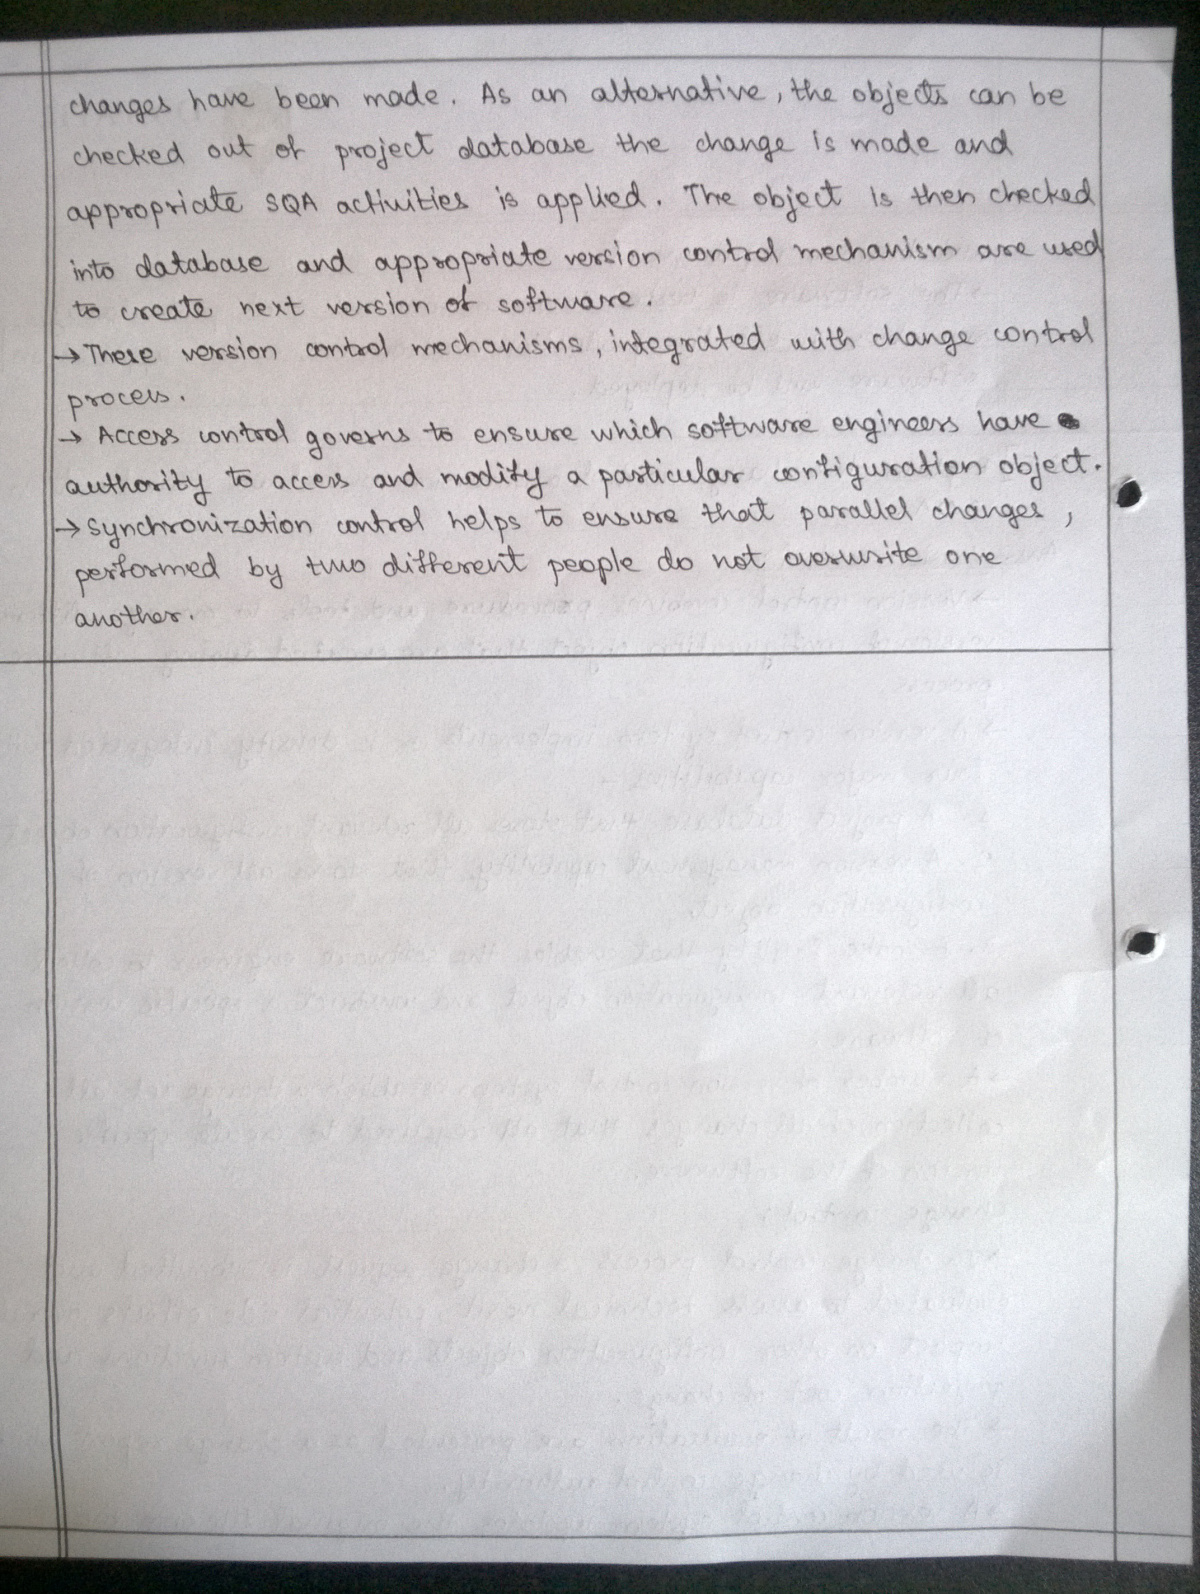 changes have been made. As an alternative, the objects can be
checked out of project database the change is made and
appropriate SQA activities is applied. The object is then checked
into database and appropriate version control mechanism are used
to create next version of software.
→ These version control mechanisms, integrated with change control
process.
→ Access control governs to ensure which software engineers have
authority to access and modify a particular configuration object.
→ Synchronization control helps to ensure that parallel changes,
performed by two different people do not overwrite one
another.